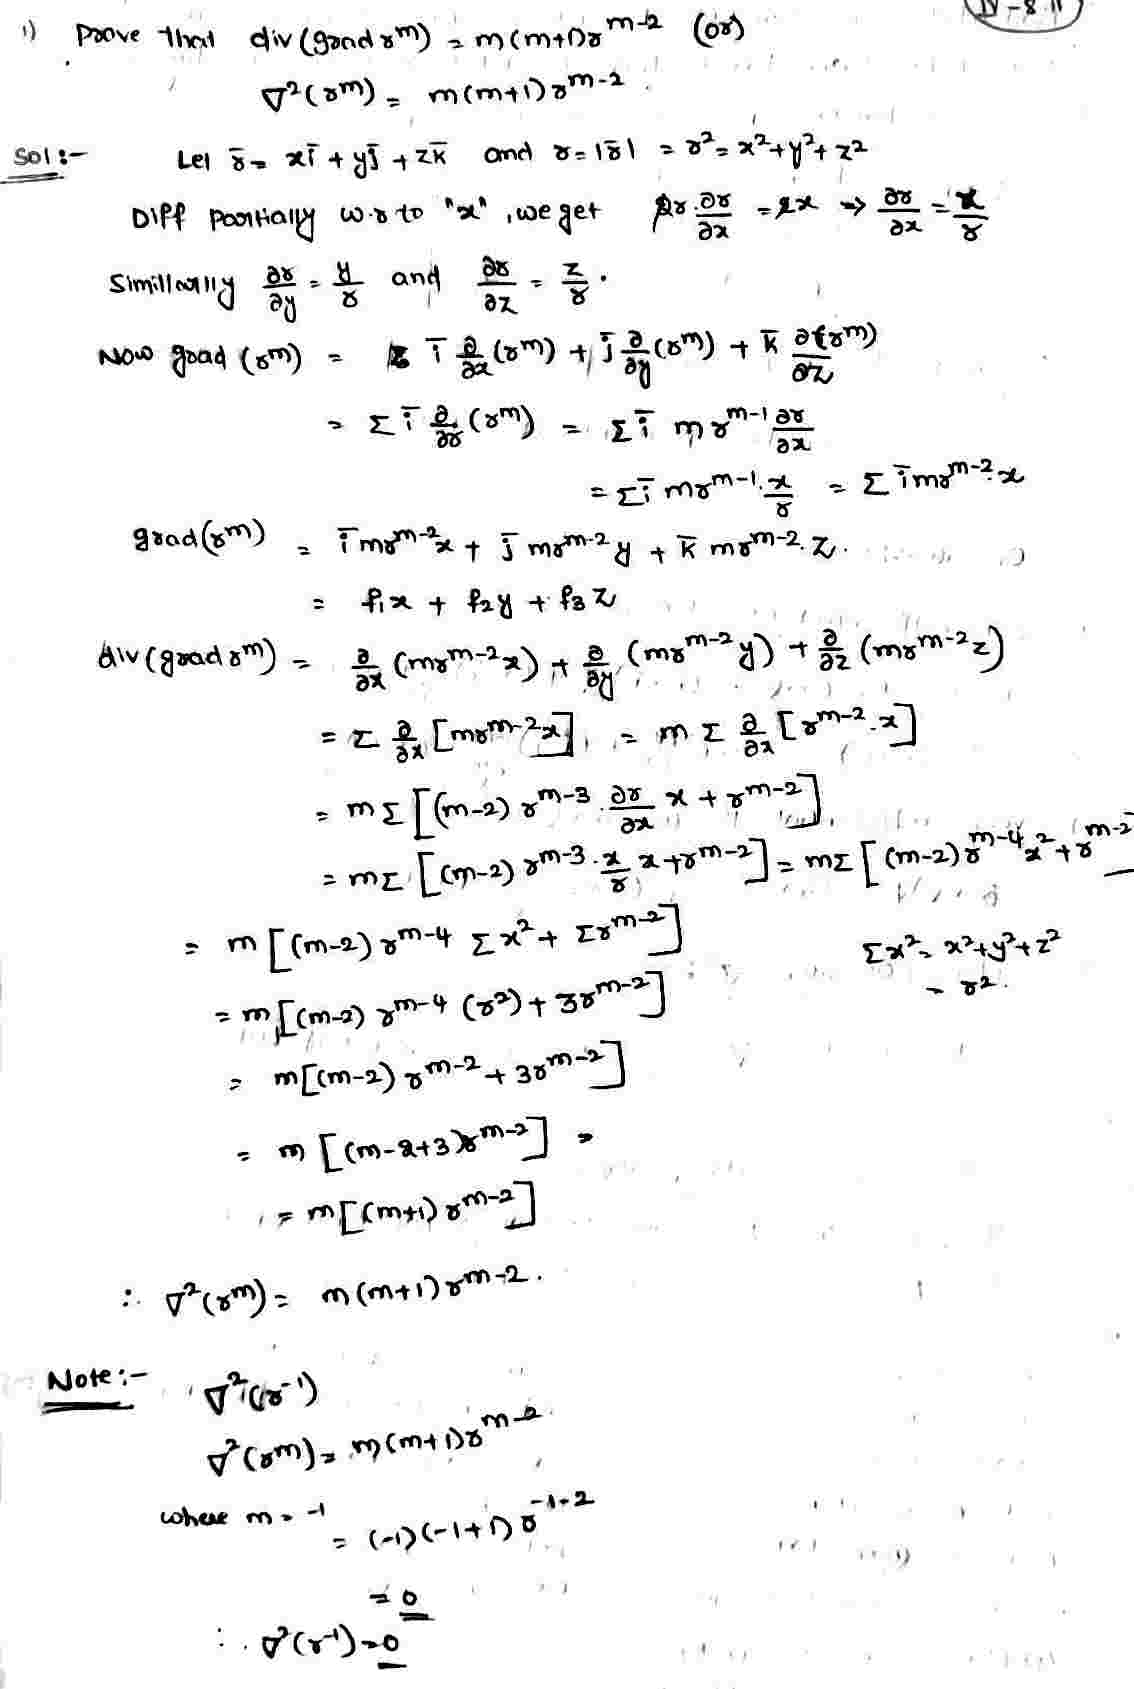 IV-8.11
1) Prove that div(grad r^m) = m(m+1)r^m-2 (or)
∇²(r^m) = m(m+1)r^m-2.
Sol:- Let r̄ = xī + yj̄ + zk̄ and r=|r̄| = r² = x²+y²+z²
Diff partially w.r to "x", we get 2r.∂r/∂x = 2x → ∂r/∂x = x/r
Simillarlly ∂r/∂y = y/r and ∂r/∂z = z/r.
Now grad (r^m) = ī ∂/∂x (r^m) + j̄ ∂/∂y (r^m) + k̄ ∂(r^m)/∂z
= Σ ī ∂/∂r (r^m) = Σ ī m r^m-1 ∂r/∂x
= Σ ī m r^m-1. x/r = Σ ī m r^m-2. x
grad(r^m) = ī m r^m-2 x + j̄ m r^m-2 y + k̄ m r^m-2. z.
= f₁x + f₂y + f₃z
div(grad r^m) = ∂/∂x (m r^m-2 x) + ∂/∂y (m r^m-2 y) + ∂/∂z (m r^m-2 z)
= Σ ∂/∂x [m r^m-2 x] = m Σ ∂/∂x [r^m-2 . x]
= m Σ [(m-2) r^m-3 . ∂r/∂x x + r^m-2]
= m Σ [(m-2) r^m-3 . x/r x + r^m-2] = m Σ [(m-2) r^m-4 x² + r^m-2
= m [(m-2) r^m-4 Σ x² + Σ r^m-2] Σx² = x²+y²+z²
= m [(m-2) r^m-4 (r²) + 3r^m-2] = r².
= m[(m-2) r^m-2 + 3r^m-2]
= m [(m-2+3)r^m-2] =
= m[(m+1) r^m-2]
∴ ∇²(r^m) = m(m+1) r^m-2.
Note:- ∇²(r^-1)
∇²(r^m) = m(m+1)r^m-2.
where m = -1 = (-1)(-1+1) r^-1-2
= 0
∴ ∇²(r^-1) = 0